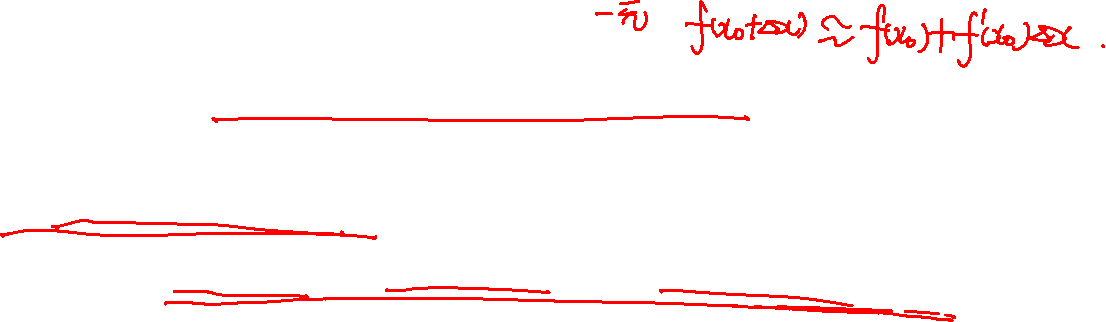 一元 f(x₀+Δx) ≈ f(x₀)+f'(x₀)Δx .